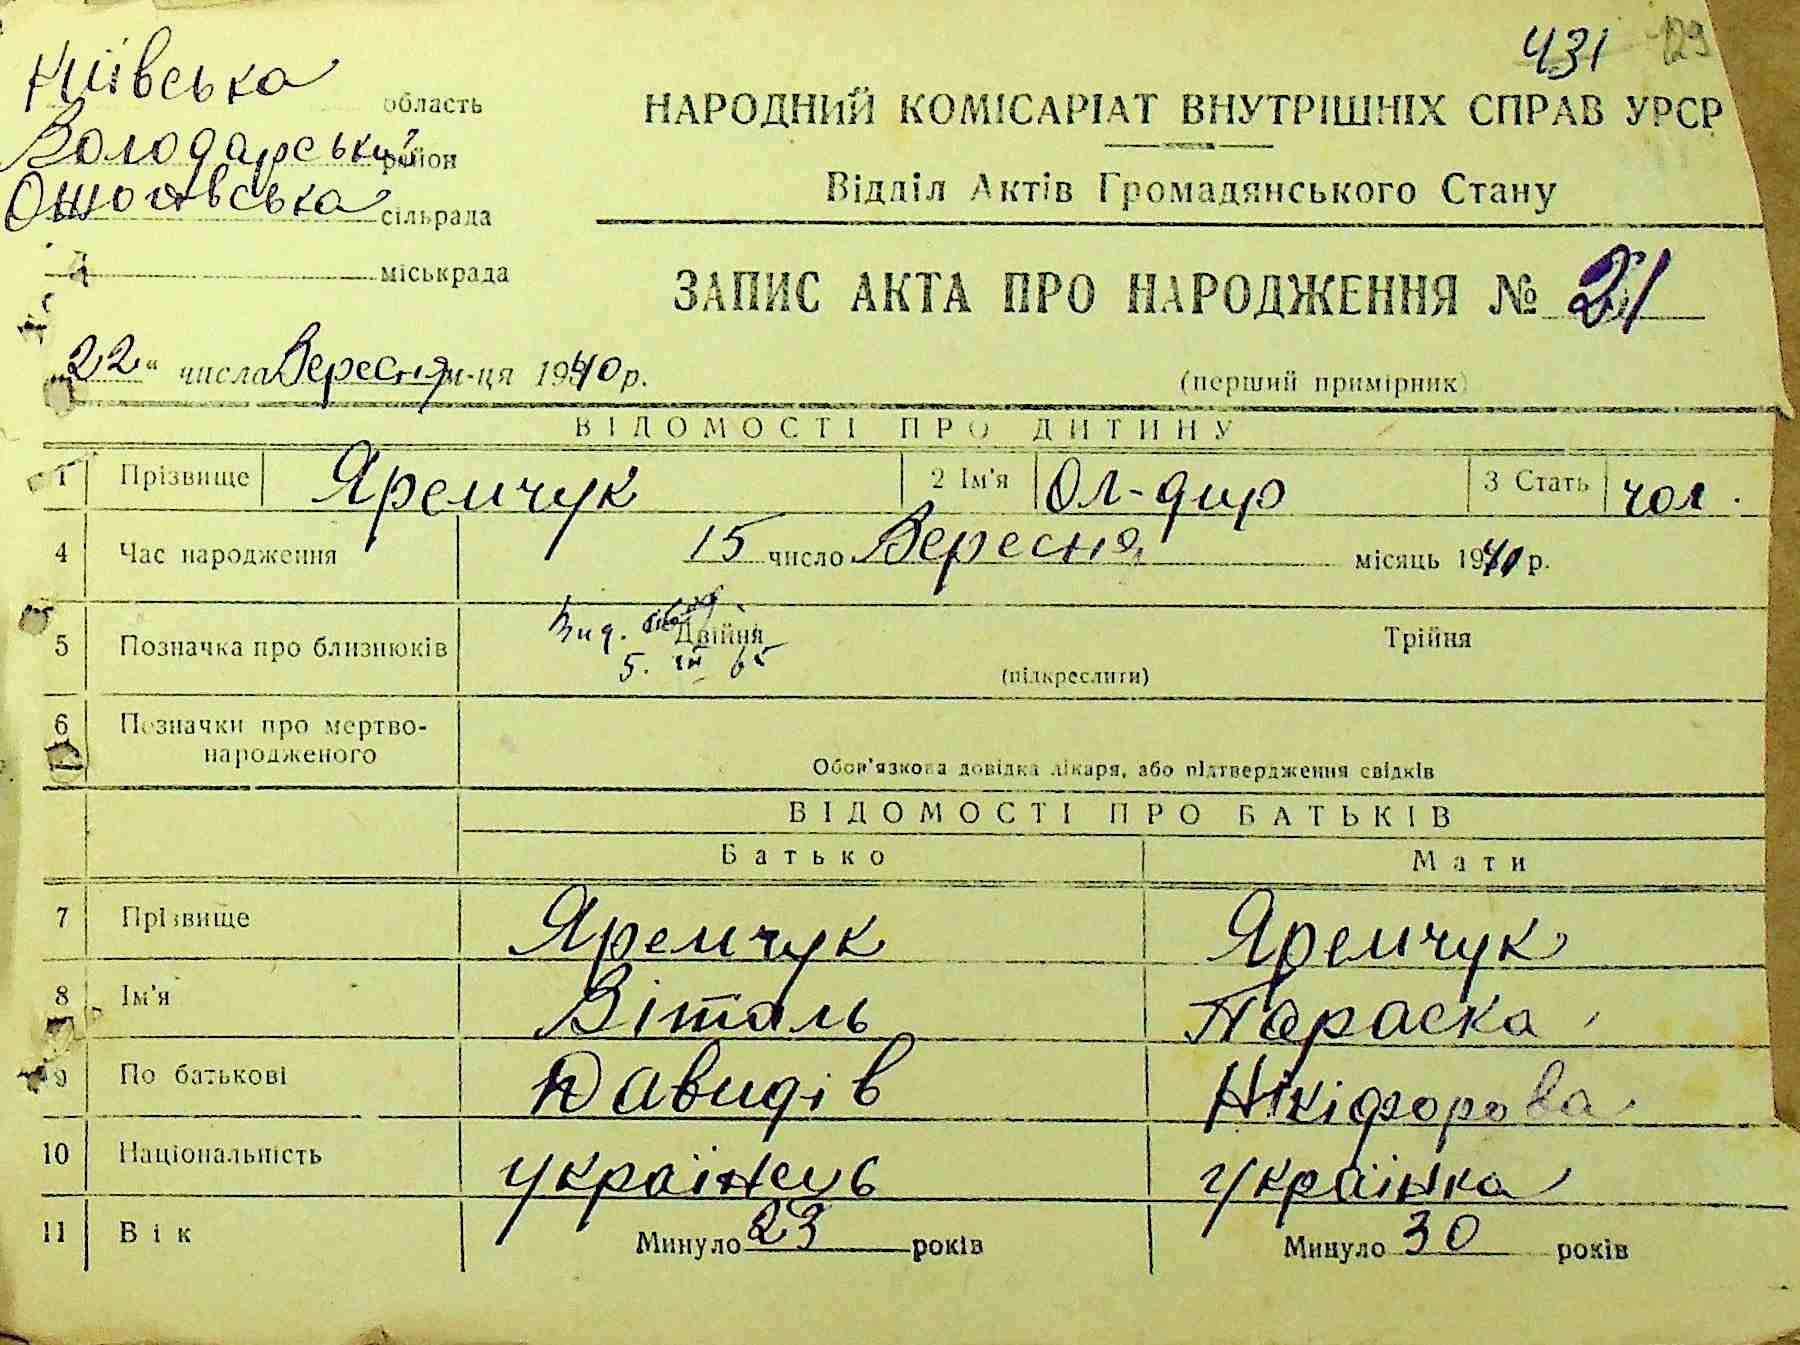 431 129
Київська область
Володарський район
Ошотвська сільрада
міськрада
НАРОДНИЙ КОМІСАРІАТ ВНУТРІШНІХ СПРАВ УРСР
Відділ Актів Громадянського Стану
ЗАПИС АКТА ПРО НАРОДЖЕННЯ № 21
22 " числа Вересня м-ця 1940 р.
(перший примірник)
ВІДОМОСТІ ПРО ДИТИНУ
1 Прізвище Яремчук 2 Ім'я Ол-дир 3 Стать чол.
4 Час народження 15 число Вересня місяць 1940 р.
5 Позначка про близнюків Двійня Трійня
Вид.
5. VII 65
(підкреслити)
6 Позначки про мертво-
народженого
Обов'язкова довідка лікаря, або підтвердження свідків
ВІДОМОСТІ ПРО БАТЬКІВ
Батько Мати
7 Прізвище Яремчук Яремчук
8 Ім'я Віталь Параска
9 По батькові Давидів Нікіфорова
10 Національність українець українка
11 Вік Минуло 23 років Минуло 30 років